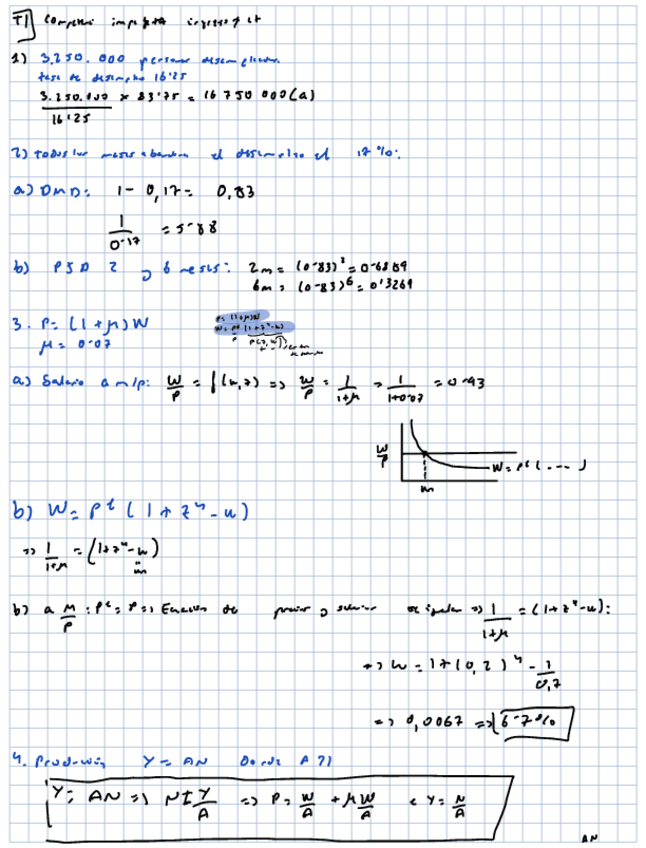 T1
1) 3.250.000 personas desempleadas.
tasa de desempleo 16'25
3.250.000 / 16'25 × 83'75 = 16 750 000 (a)
2) Todos los meses abandonan el desempleo el 17 %:
a) DMD: 1 - 0,17 = 0,83
1 / 0'17 = 5'88
b) PSD 2 y 6 meses: 2m = (0'83)² = 0'6889
6m = (0'83)⁶ = 0'3269
3. P = (1+μ) W
μ = 0'07
P = (1+μ)W
a) Salario a m/p: W/P = f(u,z) => W/P = 1/(1+μ) = 1/(1+0'07) = 0'93
W/P
W = Pᵉ ( .... )
un
b) W = Pᵉ (1 + zⁿ - u)
=> 1/(1+μ) = (1+zⁿ-u)
un
b) a M/P : Pᵉ = P => Ecuación de precios y salarios se igualan => 1/(1+μ) = (1+zⁿ-u):
=> u = 1+(0,2)ⁿ - 1/0,7
=> 0,0067 => 6'7%
4. Producción Y = AN Donde A
Y = AN => N = Y/A => P = W/A + μW/A Y = N/A
AN